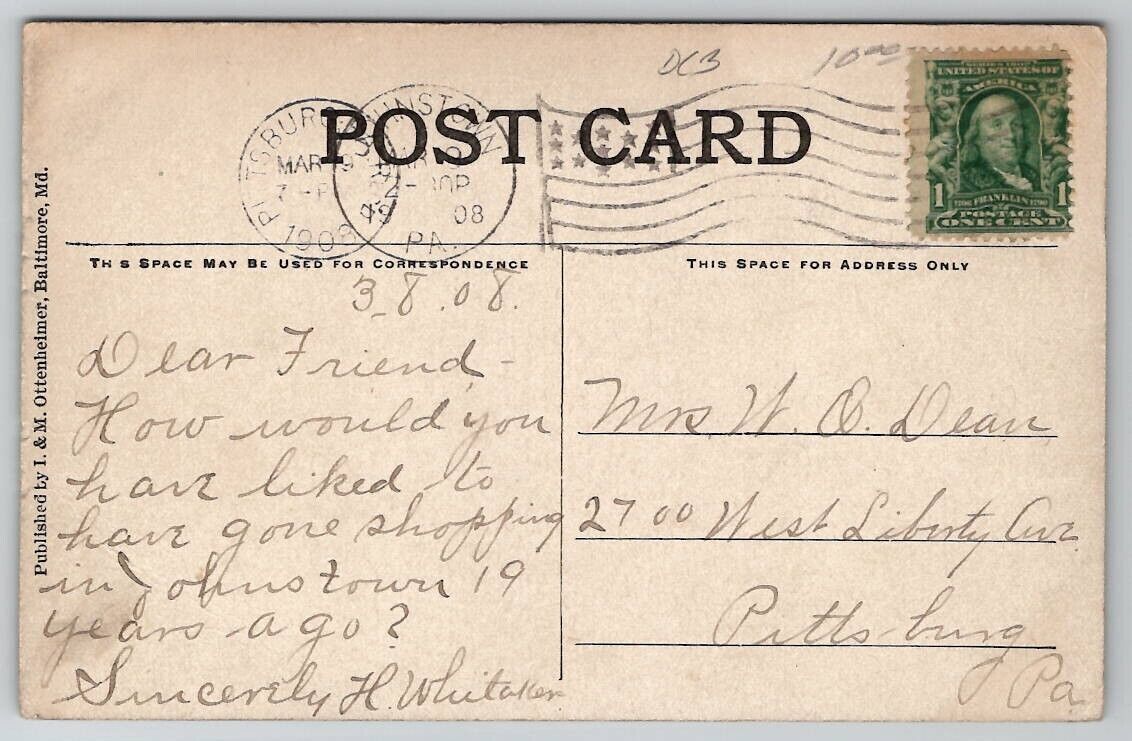 DCB 10.00
POST CARD
PITTSBURG, PA.
MAR
1908
JOHNSTOWN
08
PA.
SERIES 1902
UNITED STATES OF
AMERICA
1 1
1706 FRANKLIN 1790
POSTAGE
ONE CENT
TH S SPACE MAY BE USED FOR CORRESPONDENCE
THIS SPACE FOR ADDRESS ONLY
Published by I. & M. Ottenheimer, Baltimore, Md.
3-8.08.
Dear Friend-
How would you
have liked to
have gone shopping
in Johnstown 19
years ago?
Sincerely H. Whitaker
Mrs. W. O. Dean
2700 West Liberty Ave
Pittsburg
Pa